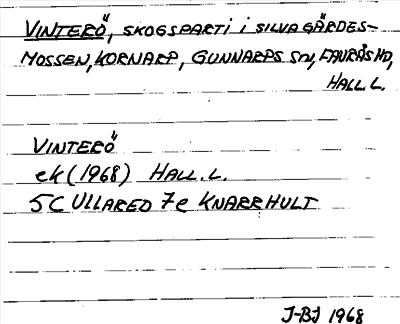 VINTERÖ, SKOGSPARTI I SILVAGÄRDES-
MOSSEN, KORNARP, GUNNARPS SN, FAURÅS HD,
HALL. L.
VINTERÖ
ek (1968) HALL. L.
5C ULLARED 7e KNARRHULT
J-BJ 1968